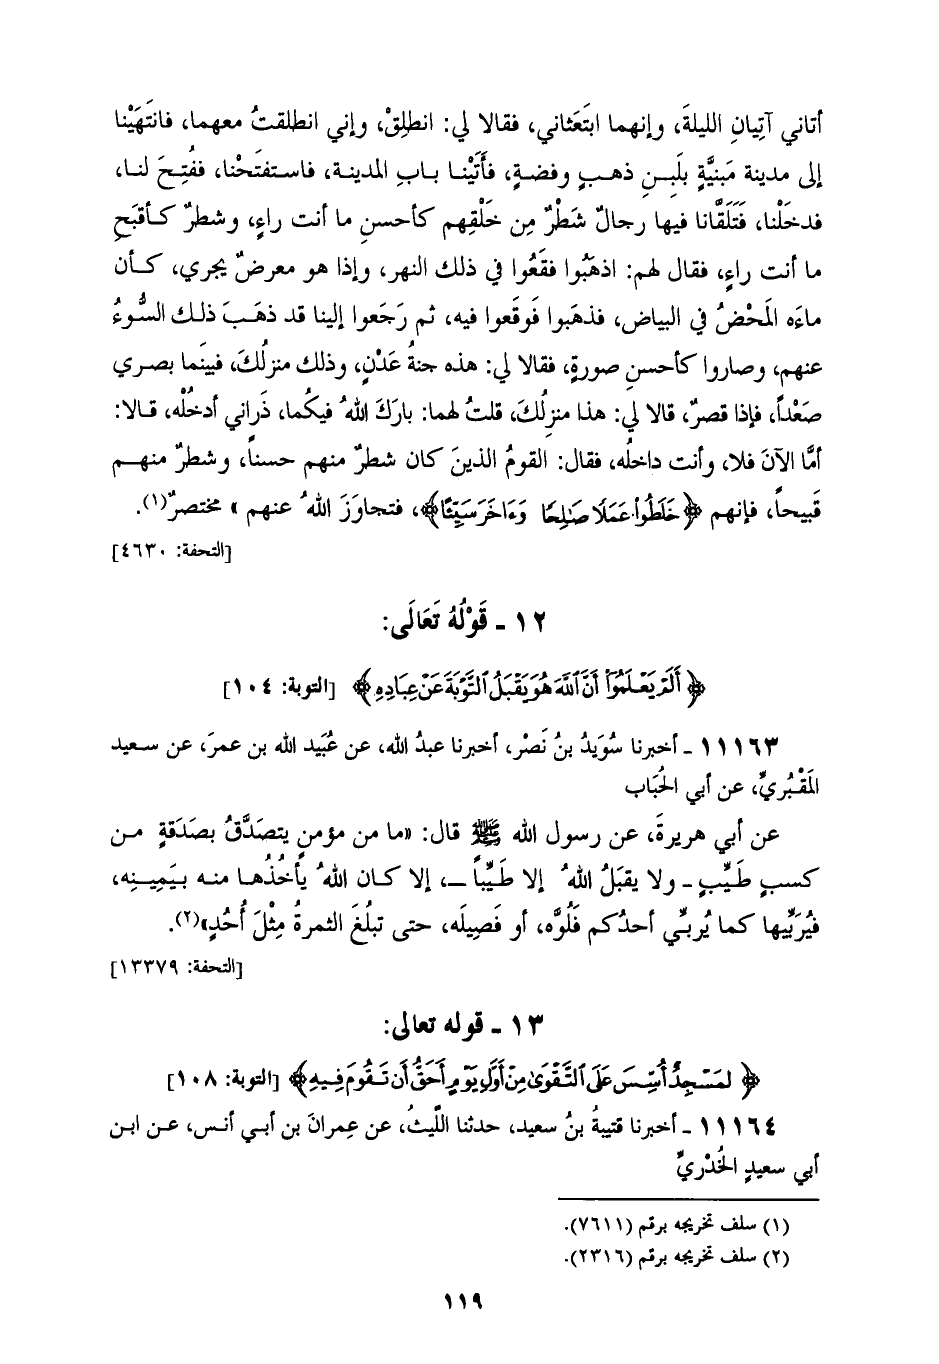 أتاني آتِيانِ الليلةَ، وإنهما ابتَعَثاني، فقالا لي: انطلِقْ، وإني انطلقتُ معهما، فانتَهَيْنا
إلى مدينة مَبنيَّةٍ بلَبِنِ ذهبٍ وفضةٍ، فأتَيْنا بابِ المدينة، فاستفتَحْنا، ففُتِحَ لنا،
فدخَلْنا، فَتَلَقَّانا فيها رجالٌ شَطْرٌ مِن خَلْقِهم كأحسنِ ما أنت راءٍ، وشطرٌ كأقبَحِ
ما أنت راءٍ، فقال لهم: اذهَبُوا فقَعُوا في ذلك النهر، وإذا هو معرضٌ يجري، كأن
ماءَه المَحْضُ في البياض، فذهَبوا فَوقَعوا فيه، ثم رَجَعوا إلينا قد ذهَبَ ذلك السُّوءُ
عنهم، وصاروا كأحسنِ صورةٍ، فقالا لي: هذه جنةُ عَدْنٍ، وذلك منزلُكَ، فبينَما بصري
صَعْداً، فإذا قصرٌ، قالا لي: هذا منزلُكَ، قلتُ لهما: بارَكَ اللهُ فيكُما، ذَراني أدخُلْه، قالا:
أمَّا الآنَ فلا، وأنت داخلُه، فقال: القومُ الذينَ كان شطرٌ منهم حسناً، وشطرٌ منهم
قَبيحاً، فإنهم ﴿خَلَطُواْ عَمَلًا صَالِحًا وَءَاخَرَ سَيِّئًا﴾، فتجاوَزَ اللهُ عنهم» مختصرٌ(١).
[التحفة: ٤٦٣٠]
١٢ - قَوْلُهُ تَعَالَى:
﴿أَلَمْ يَعْلَمُوٓاْ أَنَّ ٱللَّهَ هُوَ يَقْبَلُ ٱلتَّوْبَةَ عَنْ عِبَادِهِ﴾ [التوبة: ١٠٤]
١١١٦٣ - أخبرنا سُوَيدُ بنُ نَصْر، أخبرنا عبدُ الله، عن عُبَيد الله بن عمرَ، عن سعيد
المَقْبُريِّ، عن أبي الحُبَاب
عن أبي هريرةَ، عن رسول الله ﷺ قال: «ما من مؤمنٍ يتصدَّقُ بصَدَقةٍ من
كسبٍ طَيِّبٍ - ولا يقبَلُ اللهُ إلا طَيِّباً -، إلا كان اللهُ يأخُذُها منه بيَمِينِه،
فيُرَبِّيها كما يُربِّي أحدُكم فَلُوَّه، أو فَصِيلَه، حتى تبلُغَ الثمرةُ مِثْلَ أُحُدٍ»(٢).
[التحفة: ١٣٣٧٩]
١٣ - قوله تعالى:
﴿لَمَسْجِدٌ أُسِّسَ عَلَى ٱلتَّقْوَىٰ مِنْ أَوَّلِ يَوْمٍ أَحَقُّ أَن تَقُومَ فِيهِ﴾ [التوبة: ١٠٨]
١١١٦٤ - أخبرنا قتيبةُ بنُ سعيد، حدثنا اللَّيثُ، عن عِمرانَ بن أبي أنس، عن ابن
أبي سعيدٍ الخُدْريِّ
(١) سلف تخريجه برقم (٧٦١١).
(٢) سلف تخريجه برقم (٢٣١٦).
١١٩